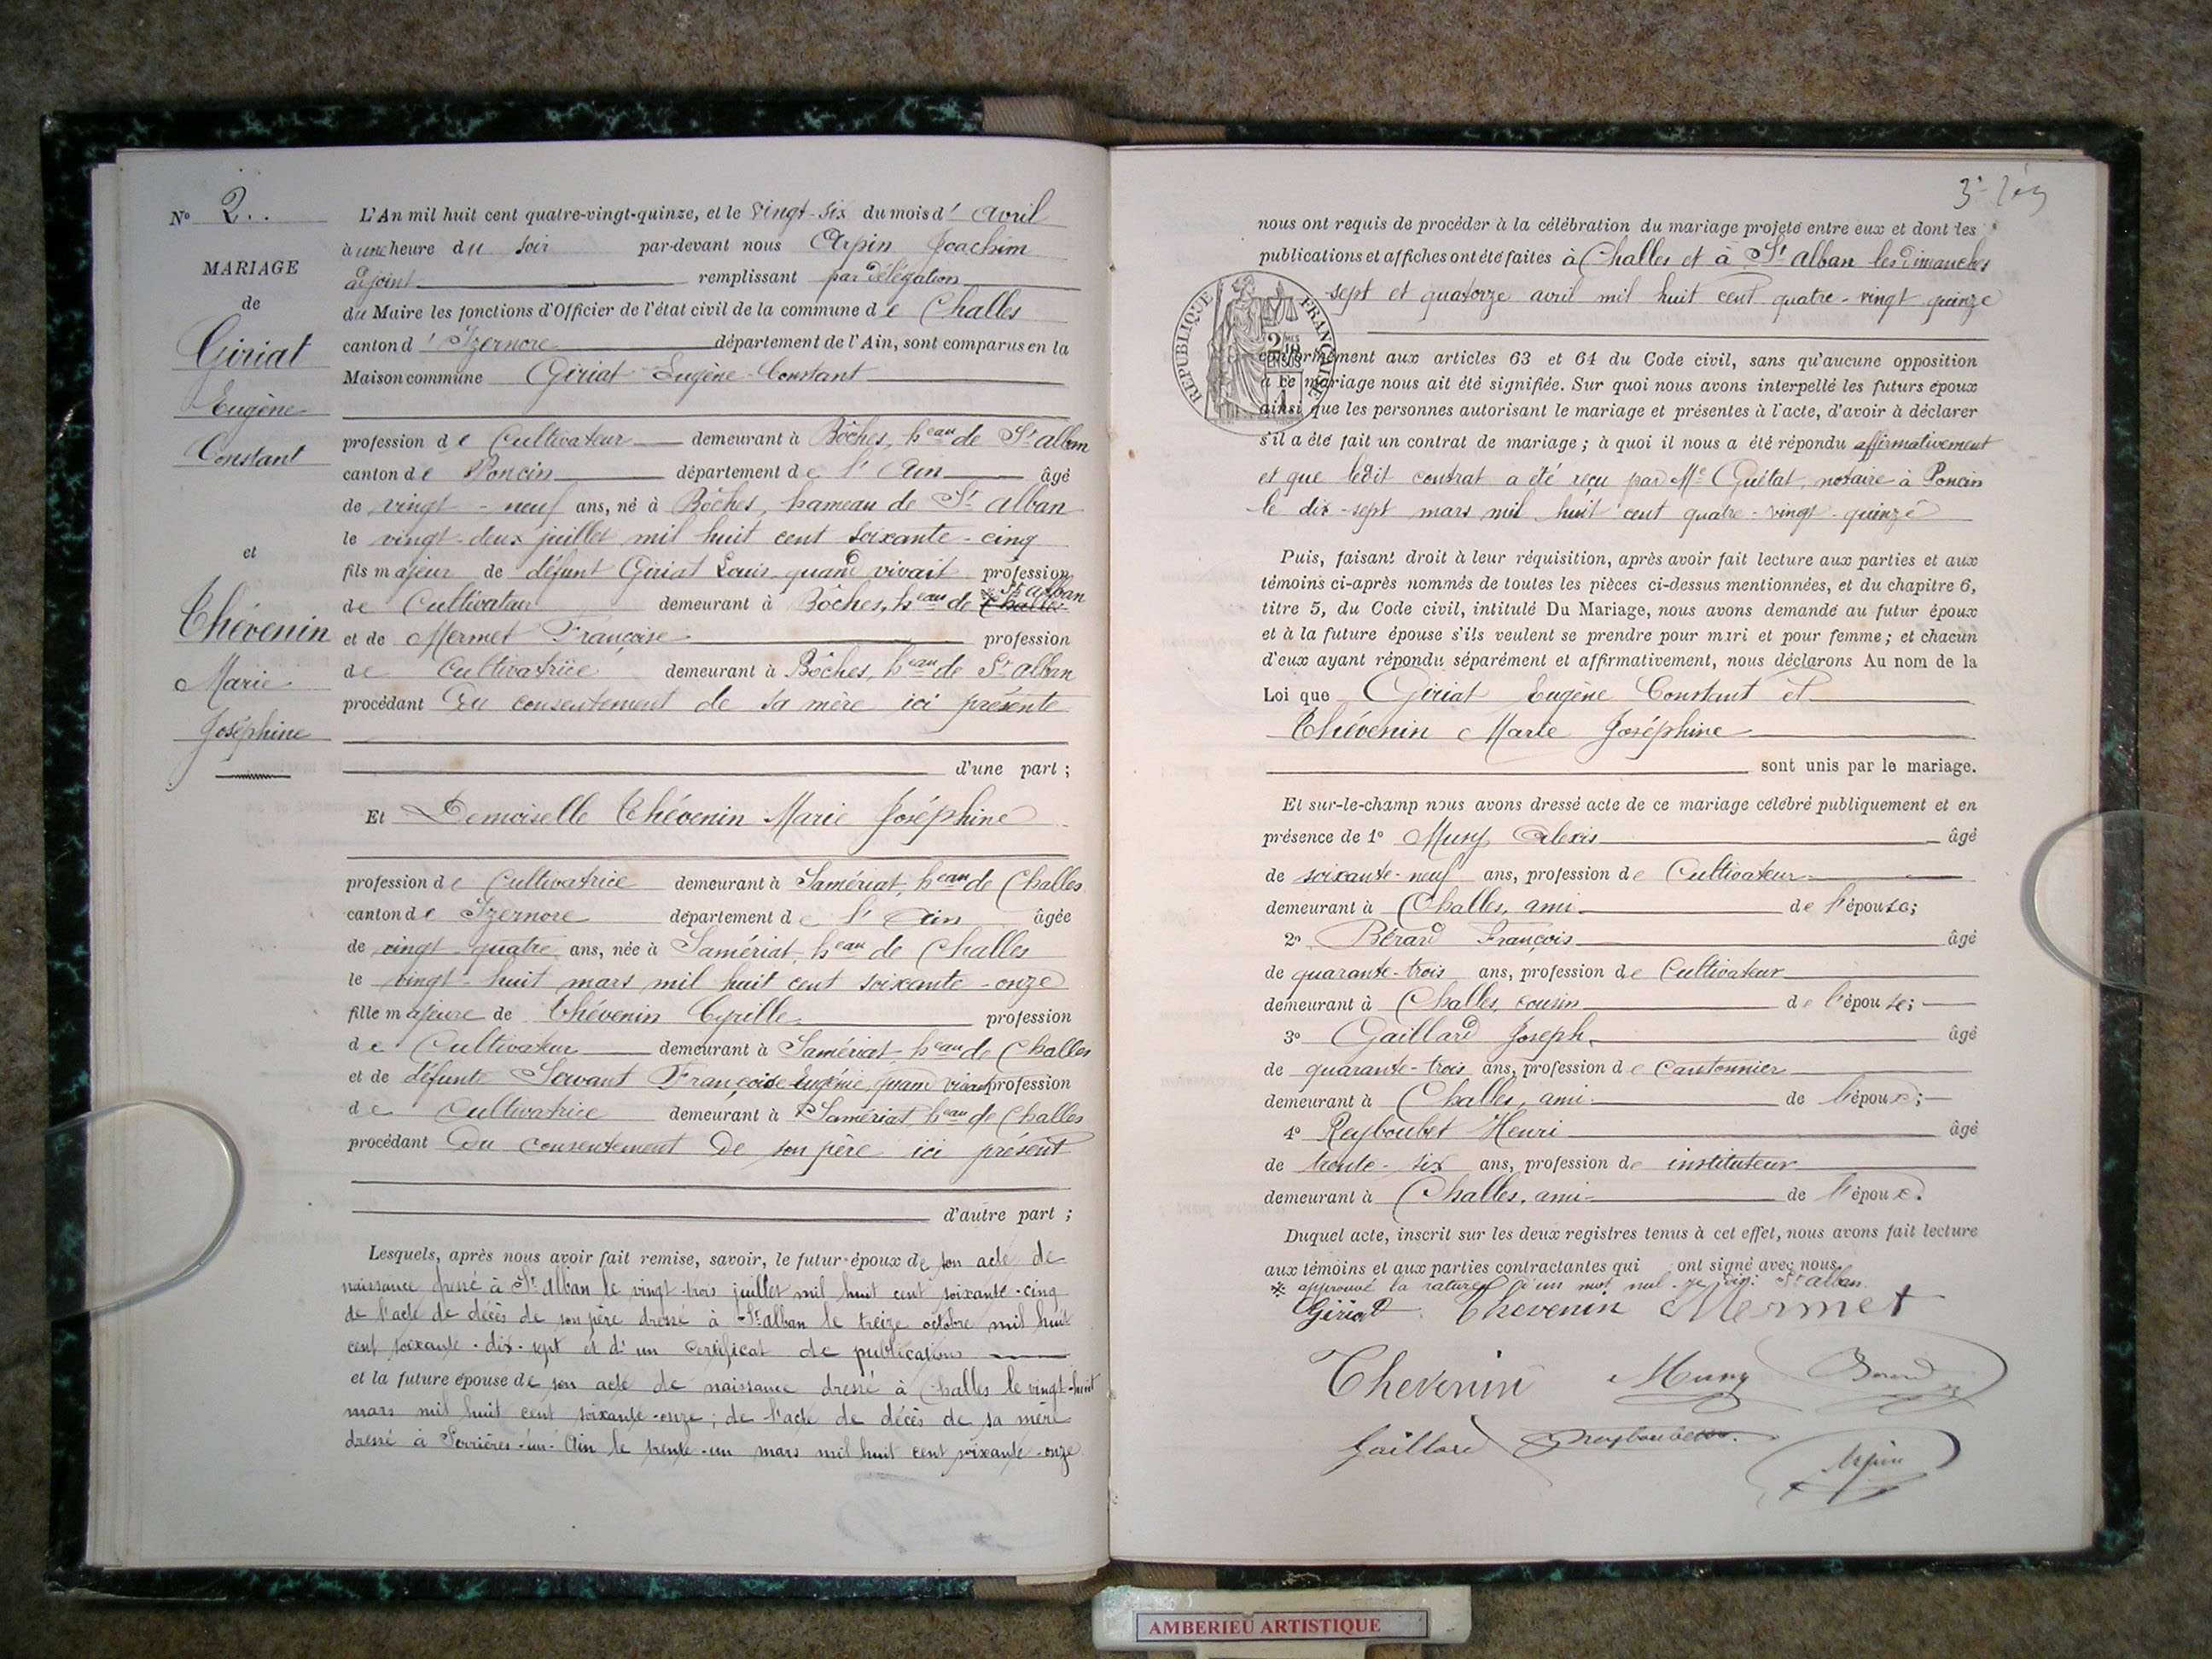 N° 2..
MARIAGE
de
Giriat
Eugène
Constant
et
Thévenin
Marie
Joséphine
L'An mil huit cent quatre-vingt-quinze, et le vingt-six du mois d' avril
à une heure du soir par-devant nous Arpin Joachim
adjoint remplissant par délégation
du Maire les fonctions d'Officier de l'état civil de la commune de Challes
canton d'Izernore département de l'Ain, sont comparus en la
Maison commune Giriat Eugène Constant
profession de Cultivateur demeurant à Bôches, heau de St alban
canton de Poncin département de l'Ain âgé
de vingt-neuf ans, né à Bôches, hameau de St alban
le vingt-deux juillet mil huit cent soixante-cinq
fils majeur de défunt Giriat Louis, quand vivait profession
de Cultivateur demeurant à Bôches, heau de Challes * St alban
et de Mermet Françoise profession
de Cultivatrice demeurant à Bôches, heau de St alban
procédant Du consentement de sa mère ici présente
d'une part ;
Et Demoiselle Thévenin Marie Joséphine
profession de Cultivatrice demeurant à Samériat, heau de Challes
canton de Izernore département de l'Ain âgée
de vingt-quatre ans, née à Samériat, heau de Challes
le vingt-huit mars mil huit cent soixante-onze
fille majeure de Thévenin Cyrille profession
de Cultivateur demeurant à Samériat, heau de Challes
et de défunte Servant Françoise Eugénie, quand vivait profession
de Cultivatrice demeurant à Samériat, heau de Challes
procédant Du consentement de son père ici présent
d'autre part ;
Lesquels, après nous avoir fait remise, savoir, le futur époux de son acte de
naissance dressé à St alban le vingt-trois juillet mil huit cent soixante-cinq
de l'acte de décès de son père dressé à St alban le treize octobre mil huit
cent soixante-dix-sept et d'un certificat de publications
et la future épouse de son acte de naissance dressé à Challes le vingt-huit
mars mil huit cent soixante-onze ; de l'acte de décès de sa mère
dressé à Serrières-sur-Ain le trente-un mars mil huit cent soixante-onze
nous ont requis de procéder à la célébration du mariage projeté entre eux et dont les
publications et affiches ont été faites à Challes et à St alban les dimanches
sept et quatorze avril mil huit cent quatre-vingt quinze
RÉPUBLIQUE FRANÇAISE
conformément aux articles 63 et 64 du Code civil, sans qu'aucune opposition
à ce mariage nous ait été signifiée. Sur quoi nous avons interpellé les futurs époux
ainsi que les personnes autorisant le mariage et présentes à l'acte, d'avoir à déclarer
s'il a été fait un contrat de mariage ; à quoi il nous a été répondu affirmativement
et que ledit contrat a été reçu par Me Guétat, notaire à Poncin
le dix-sept mars mil huit cent quatre-vingt-quinze
Puis, faisant droit à leur réquisition, après avoir fait lecture aux parties et aux
témoins ci-après nommés de toutes les pièces ci-dessus mentionnées, et du chapitre 6,
titre 5, du Code civil, intitulé Du Mariage, nous avons demandé au futur époux
et à la future épouse s'ils veulent se prendre pour mari et pour femme ; et chacun
d'eux ayant répondu séparément et affirmativement, nous déclarons Au nom de la
Loi que Giriat Eugène Constant et
Thévenin Marie Joséphine
sont unis par le mariage.
Et sur-le-champ nous avons dressé acte de ce mariage célébré publiquement et en
présence de 1° Muny Alexis âgé
de soixante-neuf ans, profession de Cultivateur
demeurant à Challes, ami de l'épouse ;
2° Bérard François âgé
de quarante-trois ans, profession de Cultivateur
demeurant à Challes, cousin de l'épouse ;
3° Gaillard Joseph, âgé
de quarante-trois ans, profession de cantonnier
demeurant à Challes, ami de l'époux ;
4° Reyboubet Henri âgé
de trente-six ans, profession de instituteur
demeurant à Challes, ami de l'époux.
Duquel acte, inscrit sur les deux registres tenus à cet effet, nous avons fait lecture
aux témoins et aux parties contractantes qui ont signé avec nous.
* approuvé la rature d'un mot nul St alban
Giriat Thevenin Mermet
Thevenin Muny Berard
Gaillard Reyboubet
Arpin
AMBERIEU ARTISTIQUE